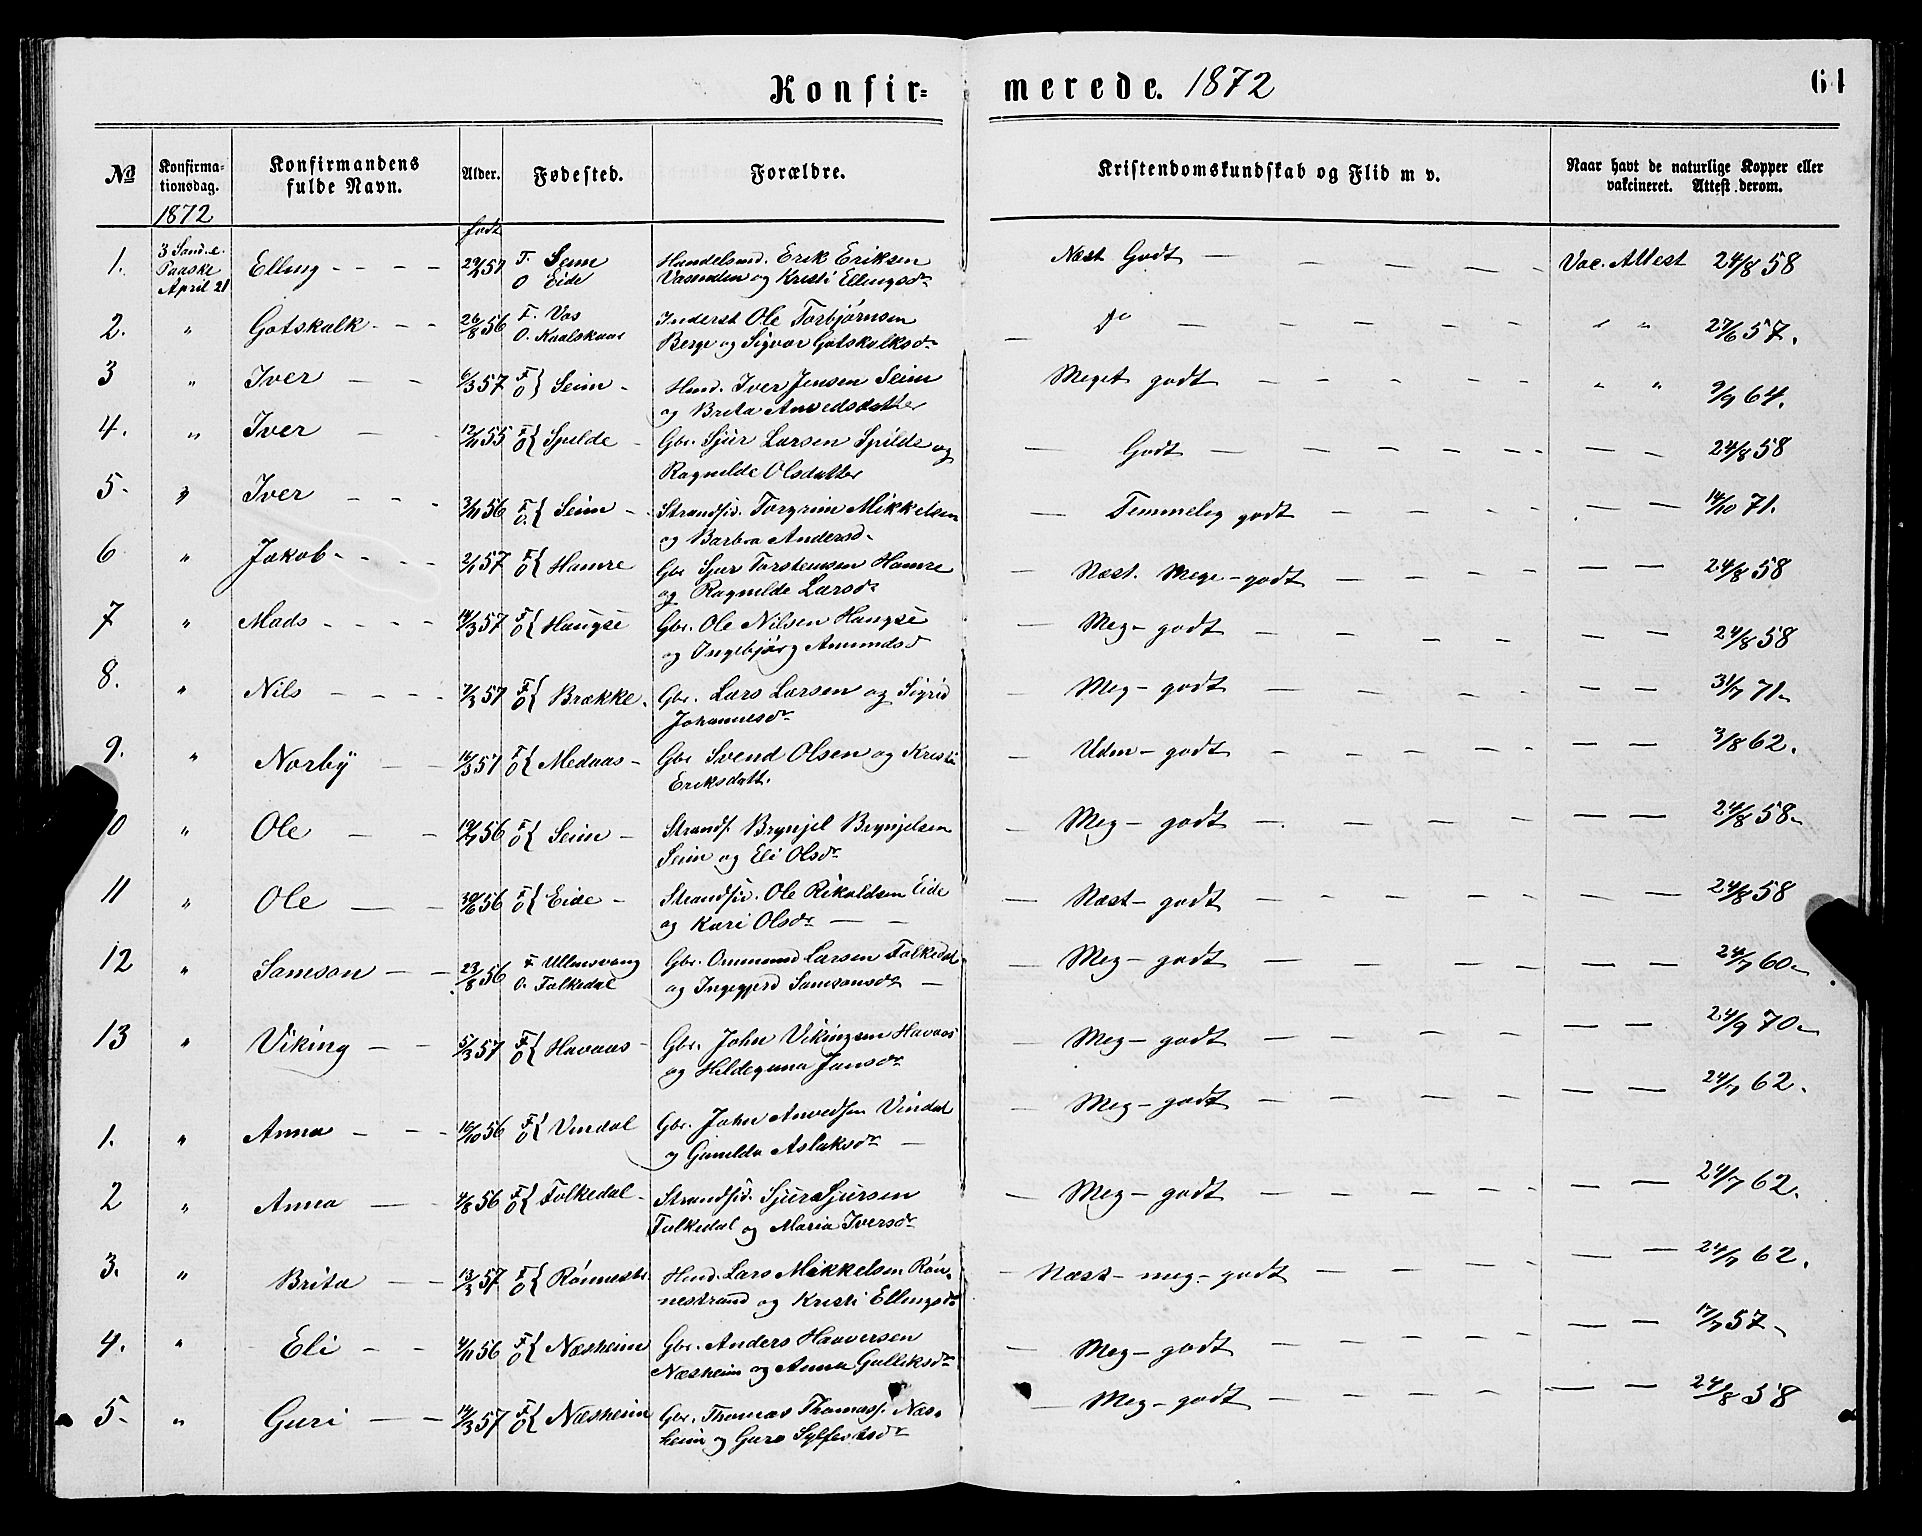 Konfir=merede. 1872
64
No
Konfirma-tionsdag.
1872
Konfirmandens fulde Navn.
Alder.
født
Fødested.
Forældre.
Kristendomskundskab og Flid m v.
Naar havt de naturlige Kopper eller vakcineret. Attest derom.
1. 3 Sønd. e. Elling - - - - 57 F. Seim Handelsmd. Erik Eriksen Næst Godt — Vac. Attest 24/8 58
Paaske O Eide Vasenden og Kristi Ellingsdr
April 21
2. " Gotskalk - - - 26/8 56 F. Vos Inderst Ole Torbjørnsen do — " " 27/6 57.
O. Kaalskaar Berge og Sigvor Gotskalksdr
3 " Iver — - 6/3 57 F O } Seim - Hmd. Iver Jensen Seim Meget godt — " " 9/9 64.
og Brita Anvedsdatter
4. " Iver — - 55 F O { Spilde - Gbr. Sjur Larsen Spilde og — Godt — 24/8 58
Ragnilde Olsdatter
5. " Iver - - - 56 F O. { Seim - Strandsid. Torgrim Mikkelsen — Temmelig godt — 14/10 71.
og Barbra Andersd.
6 " Jakob - - - - 57 F O { Hamre Gbr Sjur Torstensen Hamre — Næst. Mege - godt — 24/8 58
og Ragnilde Larsdr
7 " Mads - - - - 14/3 57 F O { Haugse Gbr. Ole Nilsen Haugse — Meg - godt — 24/8 58
og Ingebjørg Amundsd
8. " Nils - - - - 57 F O { Brække. Gbr. Lars Larsen og Sigrid — Meg - godt — 31/7 71.
Johannesdr
9. " Norby — - 14/3 57 F O { Medaas - Gbr Svend Olsen og Kristi — Udm - godt — 3/8 62.
Eriksdatt.
10 " Ole — - 56 F O { Seim - Strands. Brynjel Brynjelsen — Meg - godt — 24/8 58
Seim og Eli Olsdr
11 " Ole — - 30/6 56 F O { Eide - Strandsid. Ole Rikoldsen Eide — Næst - godt — 24/8 58
og Kari Olsdr — -
12 " Samson — - 23/8 56 F Ullensvang Gbr. Ommund Larsen Folkedal — Meg - godt — 24/7 60
O. Folkedal og Ingegjerd Samsonsdr —
13 " Viking — - 5/3 57 F O { Havaas - Gbr. John Vikingsen Havaas — Meg - godt — 24/9 70
og Hildeguna Jansdr
1. " Anna - - - 16/10 56 F O { Vindal Gbr. John Anvedsen Vindal — Meg - godt — 24/7 62.
og Gunilda Aslaksdr —
2 " Anna — - 4/8 56 F O { Folkedal - Strandsid. Sjur Sjursen — Meg - godt — 24/7 62.
Folkedal og Maria Iversdr
3. " Brita — - 13/3 57 F O { Rønnestr. Hmd. Lars Mikkelsen Røn- — Næst - meg - godt — 24/7 62.
nestrand og Kristi Ellingsdr
4. " Eli - - 4/11 56 F O { Næsheim Gbr. Anders Haaversen — Meg - godt — 17/7 57
Næsheim og Anna Gulliksdr
5. " Guri — - 14/3 57 F O { Næsheim Gbr. Thomas Thomass. Næs- — Meg - godt — 24/8 58
heim og Guro Sylfestsdr